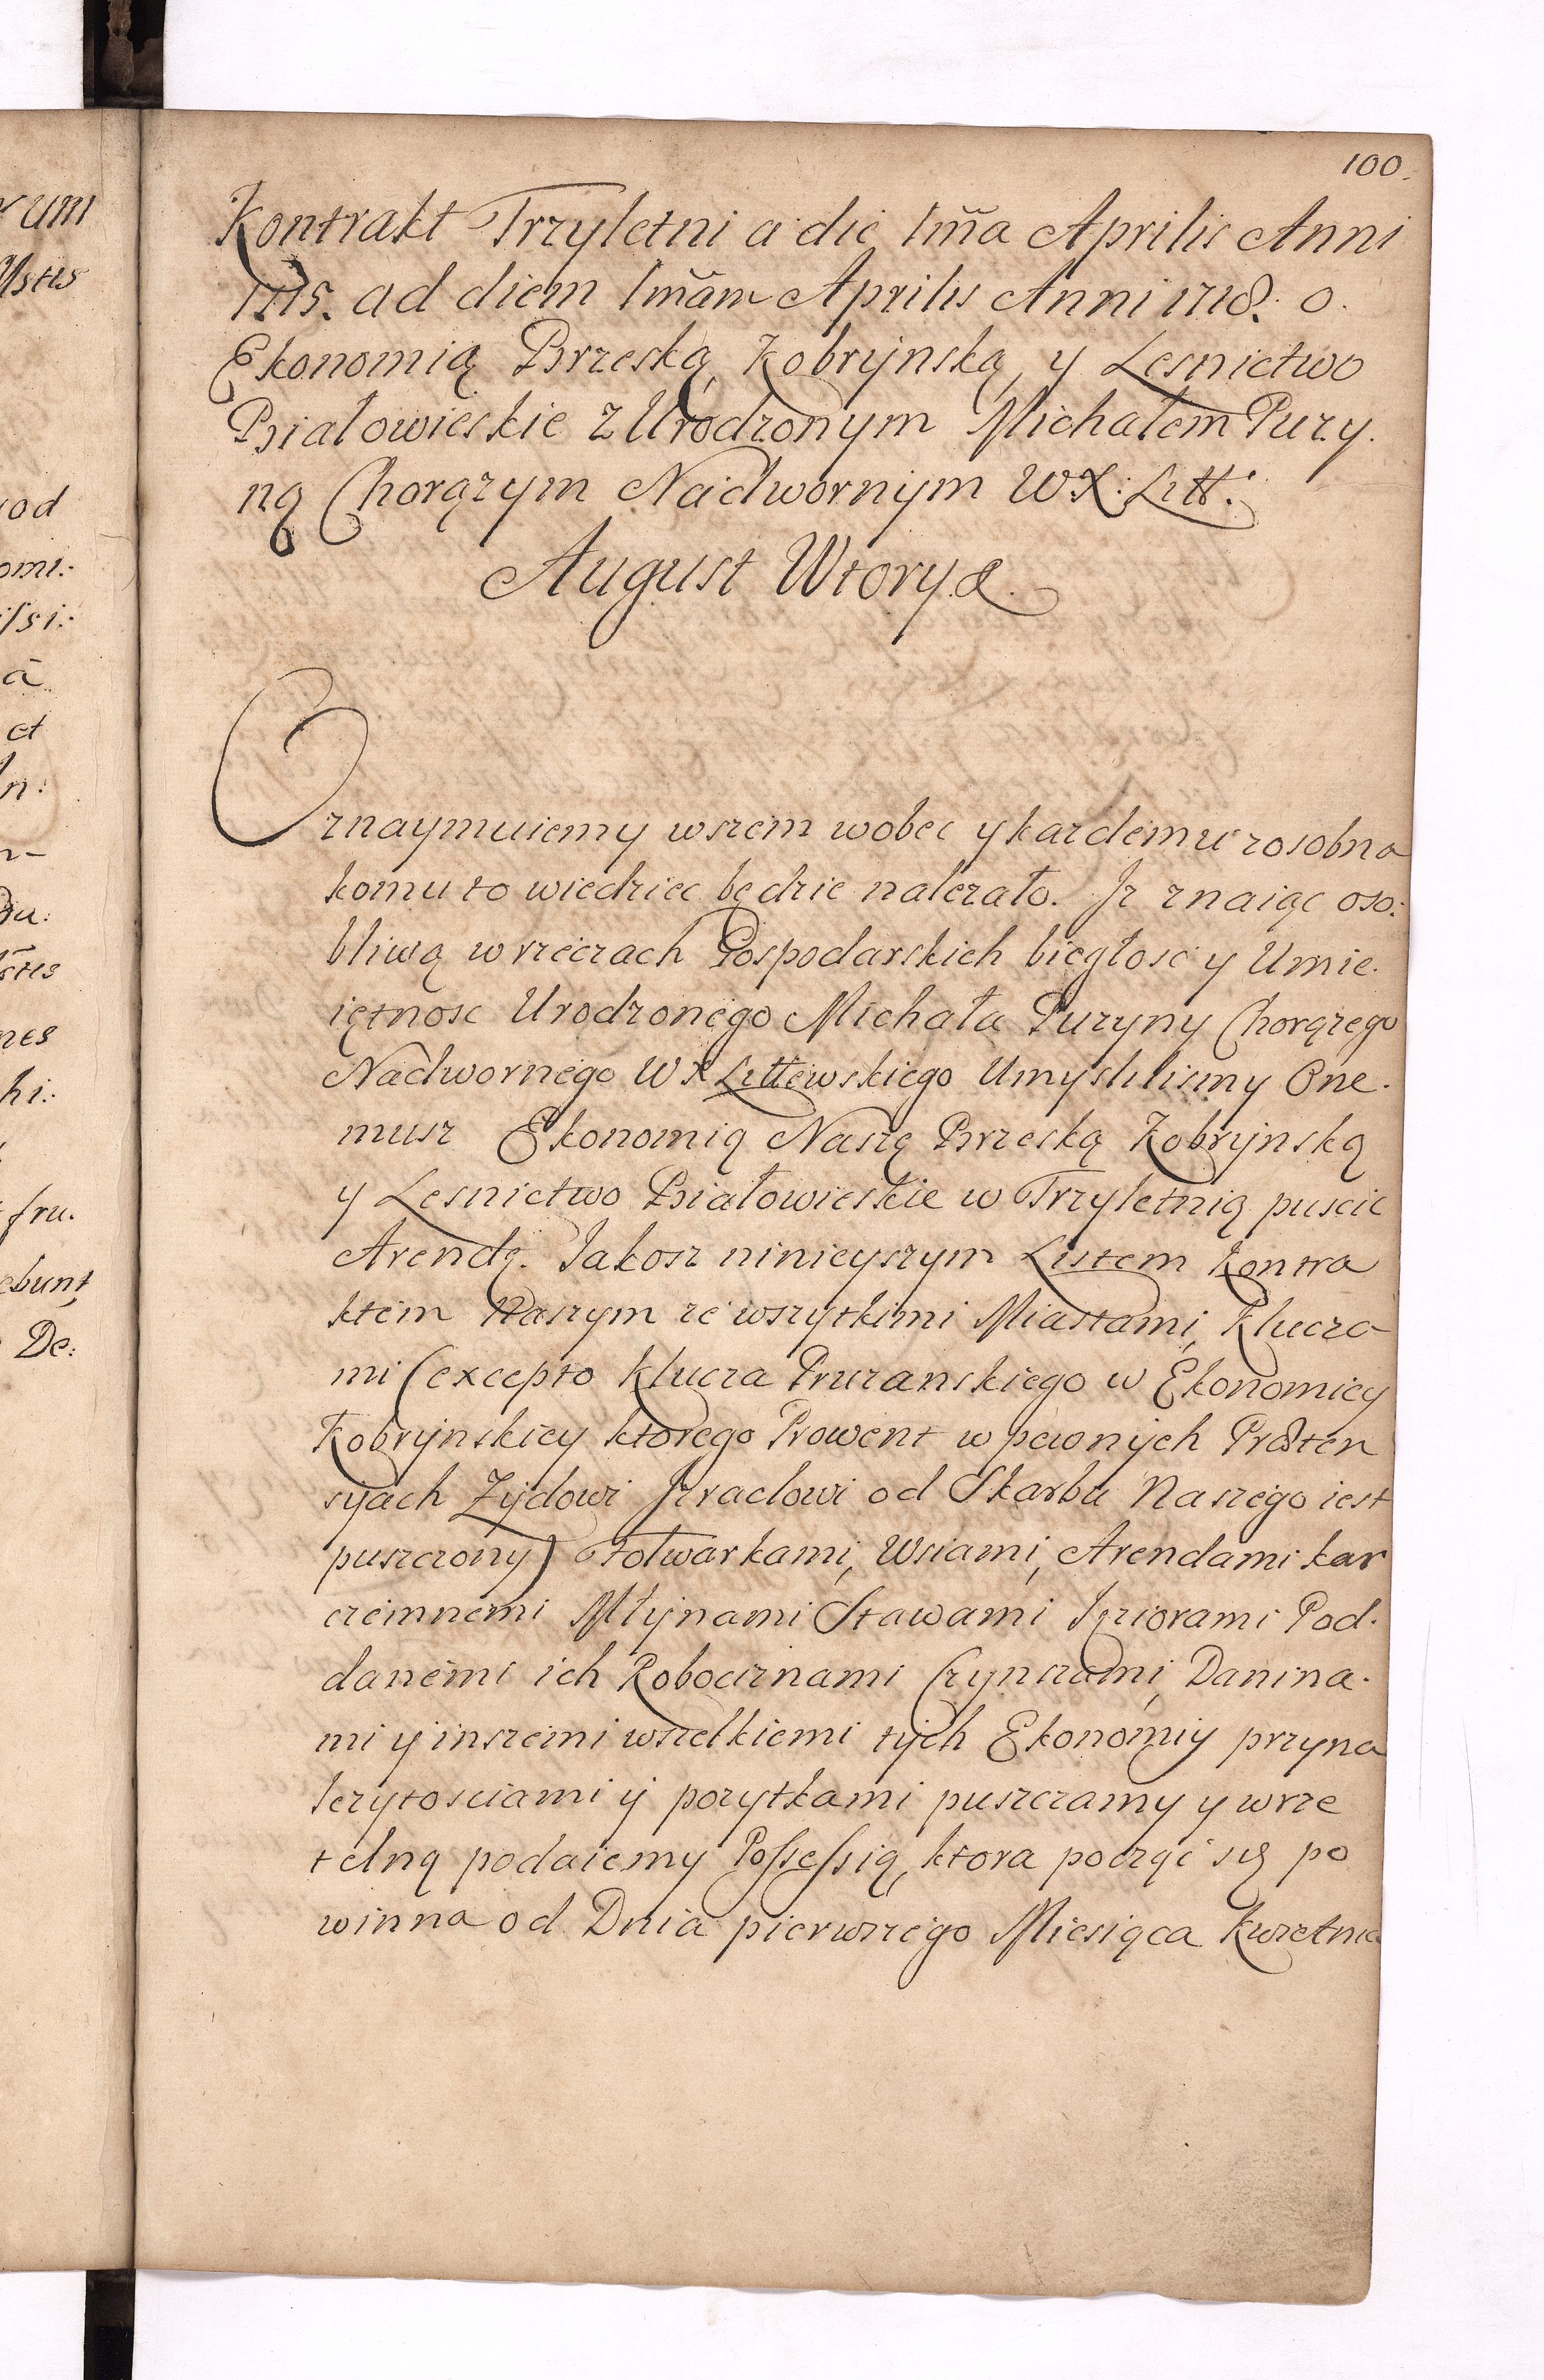 100.
Kontrakt Trzyletni a die 1m̃a Aprilis Anni
1715. ad diem 1m̃am Aprilis Anni 1718. o.
Ekonomią Brzeską, Kobrynską, y Lesnictwo
Białowieskie z Urodzonym Michałem Puzy.
ną Chorązym Nadwornym WX: Litt:
August Wtory &.
Oznaymuiemy wszem wobec y kazdemu zosobna
komu to wiedziec będzie nalezało. Iz znaiąc oso:
bliwą w rzeczach Gospodarskich biegłosc y Umie.
iętnosc Urodzonego Michała Puzyny Chorązego
Nadwornego WX Littewskiego Umyslilismy One.
musz Ekonomią Naszą Brzeską Kobrynską
y Lesnictwo Białowieskie w Trzyletnią puscic
Arendę. Jakosz ninieyszym Listem Kontra
ktem Naszym ze wszytkimi Miastami, Klucza
mi (excepto Klucza Pruzanskiego w Ekonomiey
Kobrynskiey ktorego Prowent w pewnych Præten
syach Zydowi Izraelowi od Skarbu Naszego iest
puszczony) Folwarkami, Wsiami, Arendami kar
czemnemi Młynami Stawami Ieziorami Pod.
danemi ich Robocznami Czynszami, Danina.
mi y inszemi wszelkiemi tych Ekonomiy przyna
lezytosciami y pozytkami puszczamy y wrze
telną podaiemy Possessią, ktora począc się po
winna od Dnia pierwszego Miesiąca Kwietnia